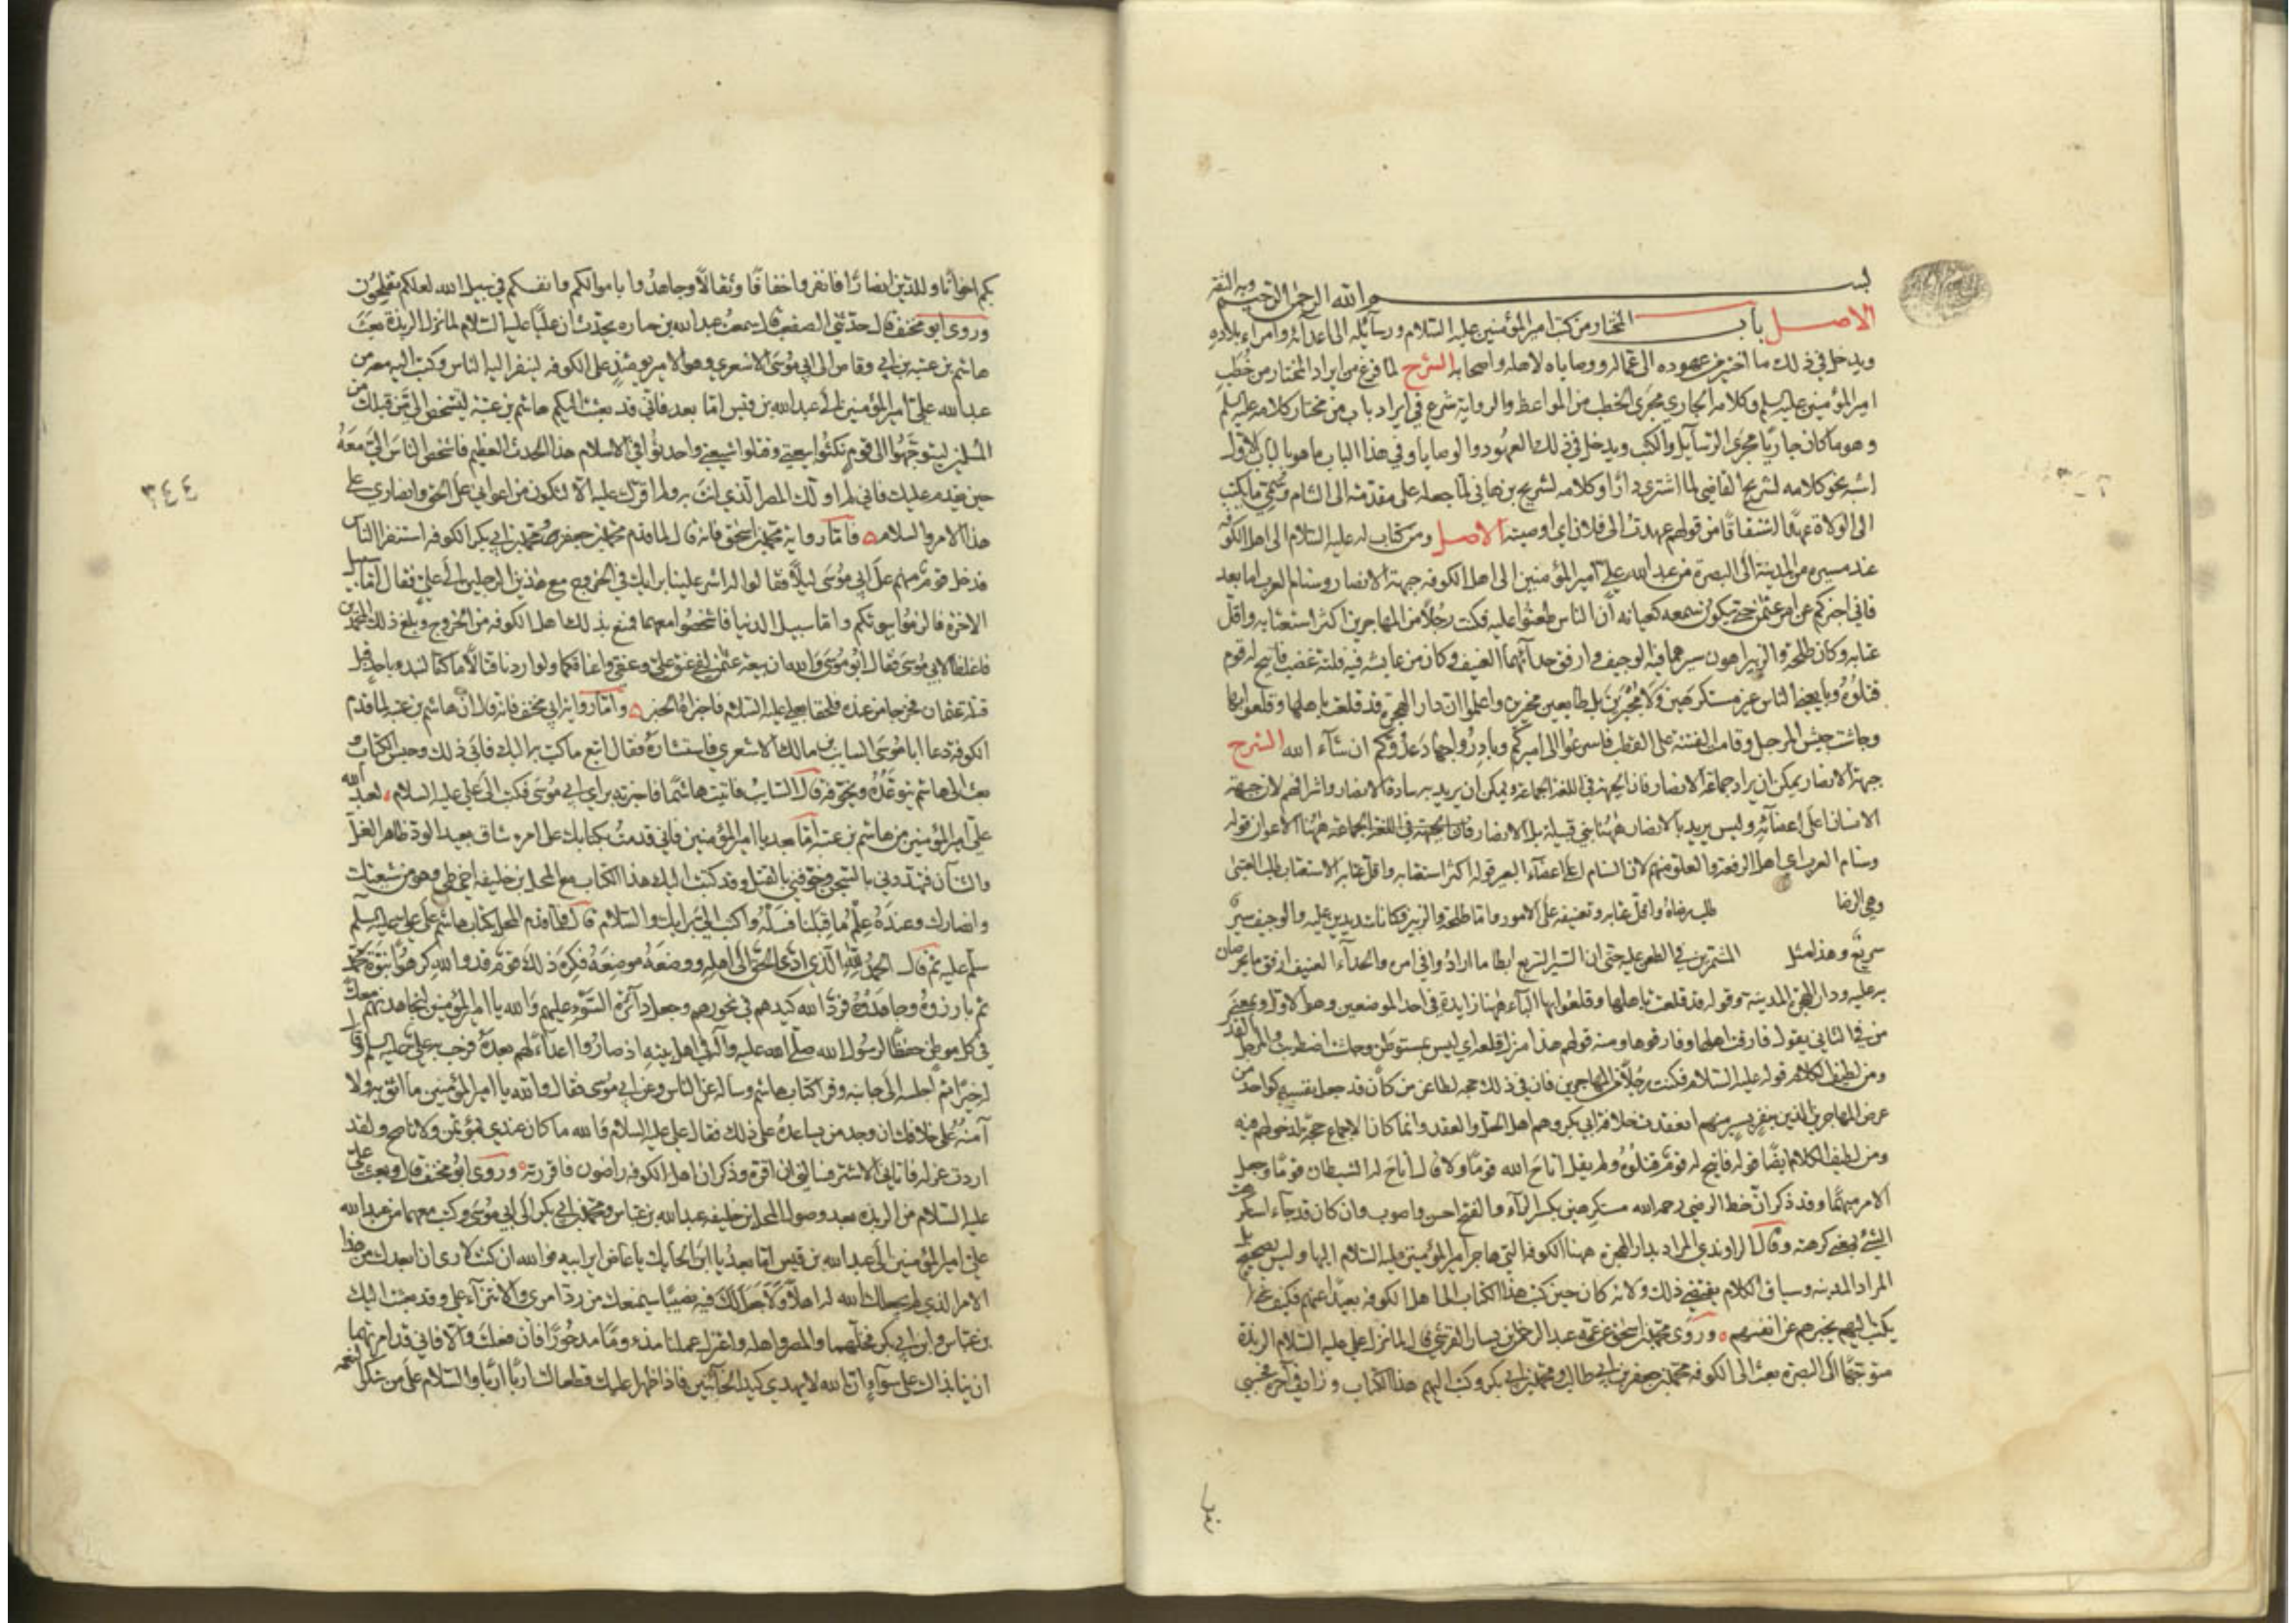 بسم الله الرحمن الرحيم وبه الثقة
الاصل باب المختار من كتب امير المؤمنين عليه السلام ورسائله الى اعدائه وامراء بلاده
ويدخل في ذلك ما اختير من عهوده الى عماله ووصاياه لاهله واصحابه الشرح لما فرغ من ايراد المختار من خطب
امير المؤمنين عليه السلم وكلامه الجاري مجرى الخطب من المواعظ والرواية شرع في ايراد باب من مختار كلامه عليه السلم
وهو ما كان جاريا مجرى الرسايل والكتب ويدخل في ذلك العهود والوصايا وفي هذا الباب ما هو بالباب الاول
اشبه نحو كلامه لشريح القاضي لما اشترى دارا وكلامه لشريح بن هاني لما جعله على مقدمته الى الشام وسمي ما يكتب
الى الولاة عهدا اشتقاقا من قولهم عهدت الى فلان اي اوصيته الاصل ومن كتاب له عليه السلام الى اهل الكوفه
عند مسيره من المدينة الى البصرة من عبد الله علي امير المؤمنين الى اهل الكوفه جبهة الانصار وسنام العرب اما بعد
فاني اخبركم عن امر عثمن حتى يكون سمعه كعيانه ان الناس طعنوا عليه فكنت رجلا من المهاجرين اكثر استعتابه واقل
عتابه وكان طلحة والزبير اهون سيرهما فيه الوجيف وارفق حدائهما العنيف وكان من عايشه فيه فلتة غضب فاتيح له قوم
قتلوه وبايعني الناس غير مستكرهين ولا مجبرين بل طايعين مخيرين واعلموا ان دار الهجرة قد قلعت باهلها وقلعوا بها
وجاشت جيش المرجل وقامت الفتنة على القطب فاسرعوا الى اميركم وبادروا جهاد عدوكم ان شاء الله الشرح
جبهة الانصار يمكن ان يراد جماعة الانصار فان الجبهة في اللغة الجماعة ويمكن ان يريد به سادة الانصار واشرافهم لان جبهة
الانسان اعلى اعضائه وليس يريد بالانصار ههنا بني قيلة بل الانصار ههنا الاعوان قوله
وسنام العرب اي اهل الرفعة والعلو منهم لان السنام اعلى اعضاء البعير قوله اكثر استعتابه واقل عتابه الاستعتاب طلب العتبى
وهي الرضا طلب رضاه واقل عتابه وتعنيفه على الامور واما طلحة والزبير فكانا شديدين عليه والوجيف سير
سريع وهذا مثل المشمرين في الطعن عليه حتى ان السير السريع ابطا ما ارادوا في امره والحداء العنيف ارفق ما يحرضان
به عليه ودار الهجرة المدينة وقوله قد قلعت باهلها وقلعوا بها الباء ههنا زايدة في احد الموضعين وهو الاول وبمعنى
من في الثاني يقول فارقت اهلها وفارقوها ومنه قولهم هذا منزل قلعة اي ليس بمستوطن وجاشت اضطربت والمرجل القدر
ومن لطيف الكلام قوله عليه السلام فكنت رجلا من المهاجرين فان في ذلك
عرض المهاجرين الذين بنفر يسير منهم انعقدت خلافة ابي بكر وهم اهل الحل والعقد وانما كان الاجماع حجة لدخولهم فيه
ومن لطيف الكلام ايضا قوله فاتيح له قوم قتلوه ولم يقل اتاح الله قوما ولا قال اتاح له الشيطان قوما وجعل
الامر مبهما وقد ذكر ان خط الرضي رحمه الله مستكرهين بكسر الراء والفتح احسن واصوب وان كان قد جاء استكرهت
الشي بمعنى كرهته وقال الراوندي المراد بدار الهجرة ههنا الكوفه التي هاجر امير المؤمنين عليه السلام اليها وليس بصحيح بل
المراد المدينه وسياق الكلام يقتضي ذلك ولانه كان حين كتب هذا الكتاب الى اهل الكوفه بعيدا عنهم فكيف
يكتب اليهم يخبرهم عن انفسهم وروى محمد بن اسحق عن عمه عبد الرحمن بن يسار القرشي قال لما نزل علي عليه السلام الربذة
متوجها الى البصرة بعث الى الكوفه محمد بن جعفر بن ابي طالب ومحمد بن ابي بكر وكتب اليهم هذا الكتاب وزاد في آخره فحسبي
بكم اخوانا وللدين انصارا فانفروا خفافا وثقالا وجاهدوا باموالكم وانفسكم في سبيل الله لعلكم تفلحون
وروى ابو مخنف قال حدثني الصقعب قال سمعت عبد الله بن جناده يحدث ان عليا عليه السلام لما نزل الربذة بعث
هاشم بن عتبه بن ابي وقاص الى ابي موسى الاشعري وهو الامير يومئذ على الكوفه لينفر اليه الناس وكتب اليه معه من
عبد الله علي امير المؤمنين الى عبد الله بن قيس اما بعد فاني قد بعثت اليكم هاشم بن عتبة لتشخص الي من قبلك من
المسلمين ليتوجهوا الى قوم نكثوا بيعتي وقتلوا شيعتي واحدثوا في الاسلام هذا الحدث العظيم فاشخص الناس الي معه
حين يقدم عليك فاني لم اولك المصر الذي انت به ولم اقرك عليه الا لتكون من اعواني على الحق وانصاري على
هذا الامر والسلام فاما رواية محمد بن اسحق فانه قال لما قدم محمد بن جعفر ومحمد بن ابي بكر الكوفه استنفرا الناس
فدخل قوم منهم على ابي موسى ليلا فقالوا له اشر علينا برايك في الخروج مع هذين الرجلين الى علي فقال اما سبيل
الاخرة فالزموا بيوتكم واما سبيل الدنيا فاشخصوا معهما فمنع بذلك اهل الكوفه من الخروج وبلغ ذلك المحمدين
فاغلظا لابي موسى فقال ابو موسى والله ان بيعة عثمن لفي عنق علي وعنقي واعناقكما ولو اردنا قتالا ما كنا لنبدا باحد قبل
قتلة عثمان فخرجا من عنده فلحقا بعلي عليه السلام فاخبراه الخبر واما رواية ابي مخنف فانه قال ان هاشم بن عتبه لما قدم
الكوفة دعا ابا موسى السايب بن مالك الاشعري فاستشاره فقال اتبع ما كتب به اليك فابى ذلك وحبس الكتاب و
بعث الى هاشم يتوعده ويخوفه قال السايب فاتيت هاشما فاخبرته براي ابي موسى فكتب الى علي عليه السلام لعبد الله
علي امير المؤمنين من هاشم بن عتبه اما بعد يا امير المؤمنين فاني قدمت بكتابك على امرء شاق بعيد الود ظاهر الغل
والشنآن فتهددني بالسجن وخوفني بالقتل وقد كتبت اليك هذا الكتاب مع المحل بن خليفه اخي طي وهو من شيعتك
وانصارك وعنده علم ما قبلنا فسله واكتب الي برايك والسلام قال فلما قدم المحل بكتاب هاشم على علي عليه السلم
سلم عليه ثم قال الحمد لله الذي ادى الحق الى اهله ووضعه موضعه فكره ذلك قوم قد والله كرهوا نبوة محمد
ثم بارزوه وجاهدوه فرد الله كيدهم في نحورهم وجعل دائرة السوء عليهم والله يا امير المؤمنين لنجاهدنهم معك
في كل موطن حفظا لرسول الله صلى الله عليه وآله في اهل بيته اذ صاروا اعداء لهم بعده فرحب به علي عليه السلم وقال
له خيرا ثم اجلسه الى جانبه وقرا كتاب هاشم وساله عن الناس وعن ابي موسى فقال والله يا امير المؤمنين ما اثق به ولا
آمنه على خلافك ان وجد من يساعده على ذلك فقال علي عليه السلام والله ما كان عندي بمؤتمن ولا ناصح ولقد
اردت عزله فاتاني الاشتر فسالني ان اقره وذكر ان اهل الكوفه به راضون فاقررته وروى ابو مخنف قال وبعث علي
عليه السلام من الربذه بعد وصول المحل بن خليفه عبد الله بن عباس ومحمد بن ابي بكر الى ابي موسى وكتب معهما من عبد الله
علي امير المؤمنين الى عبد الله بن قيس اما بعد يا ابن الحايك يا عاض اير ابيه فوالله ان كنت لارى ان بعدك من هذا
الامر الذي لم يجعلك الله له اهلا ولا جعل لك فيه نصيبا سيمنعك من رد امري والانتزاء علي وقد بعثت اليك
بن عباس وابن ابي بكر فخلهما والمصر واهله واعتزل عملنا مذؤوما مدحورا فان فعلت والا فاني قد امرتهما
ان ينابذاك على سواء ان الله لا يهدي كيد الخائنين فاذا ظهرا عليك قطعاك اربا اربا والسلام على من شكر النعمه
٣٤٤